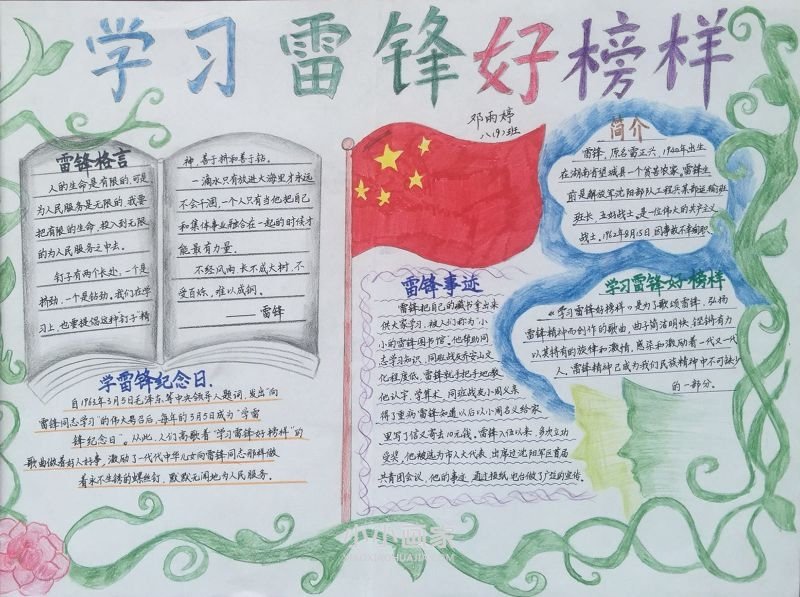 学习雷锋好榜样
邓雨婷
八(9)班
雷锋格言
人的生命是有限的,可是,
为人民服务是无限的,我要
把有限的生命,投入到无限
的为人民服务之中去。
钉子有两个长处,一个是
挤劲,一个是钻劲。我们在学
习上,也要提倡这种“钉子”精
神,善于挤和善于钻。
一滴水只有放进大海里才永远
不会干涸,一个人只有当他把自己
和集体事业融合在一起的时候才
能最有力量。
不经风雨,长不成大树,不
受百炼,难以成钢。
雷锋
学雷锋纪念日.
自1963年3月5日毛泽东等中央领导人题词,发出“向
雷锋同志学习”的伟大号召后,每年的3月5日成为“学雷
锋纪念日”。从此,人们高歌着“学习雷锋好榜样”的
歌曲做着好人好事,激励了一代代中华儿女向雷锋同志那样做
着永不生锈的螺丝钉,默默无闻地为人民服务。
简介
雷锋,原名雷正兴,1940年出生
在湖南省望城县一个贫苦农家,雷锋生
前是解放军沈阳部队工程兵某部运输班
班长、五好战士,是一位伟大的共产主义
战士。1962年8月15日因事故不幸殉职
雷锋事迹
雷锋把自己的藏书拿出来
供大家学习,被人们称为“小
小的雷锋图书馆”。他帮助同
志学习知识,同班战友乔安山文
化程度低,雷锋就手把手地教
他认字、学算术。同班战友小周父亲
得了重病,雷锋知道以后以小周名义给家
里写了信又寄去10元钱。雷锋入伍以来,多次立功
受奖,他被选为市人大代表,出席过沈阳军区首届
共青团会议,他的事迹,通过报纸,电台做了广泛的宣传。
学习雷锋好榜样
《学习雷锋好榜样》是为了歌颂雷锋,弘扬
雷锋精神而创作的歌曲,曲子简洁明快、铿锵有力
以其特有的旋律和激情,感染和激励着一代又一代
人,雷锋精神已成为我们民族精神中不可缺少
的一部分。
小小画家
XIAOXIAOHUAJIA.COM